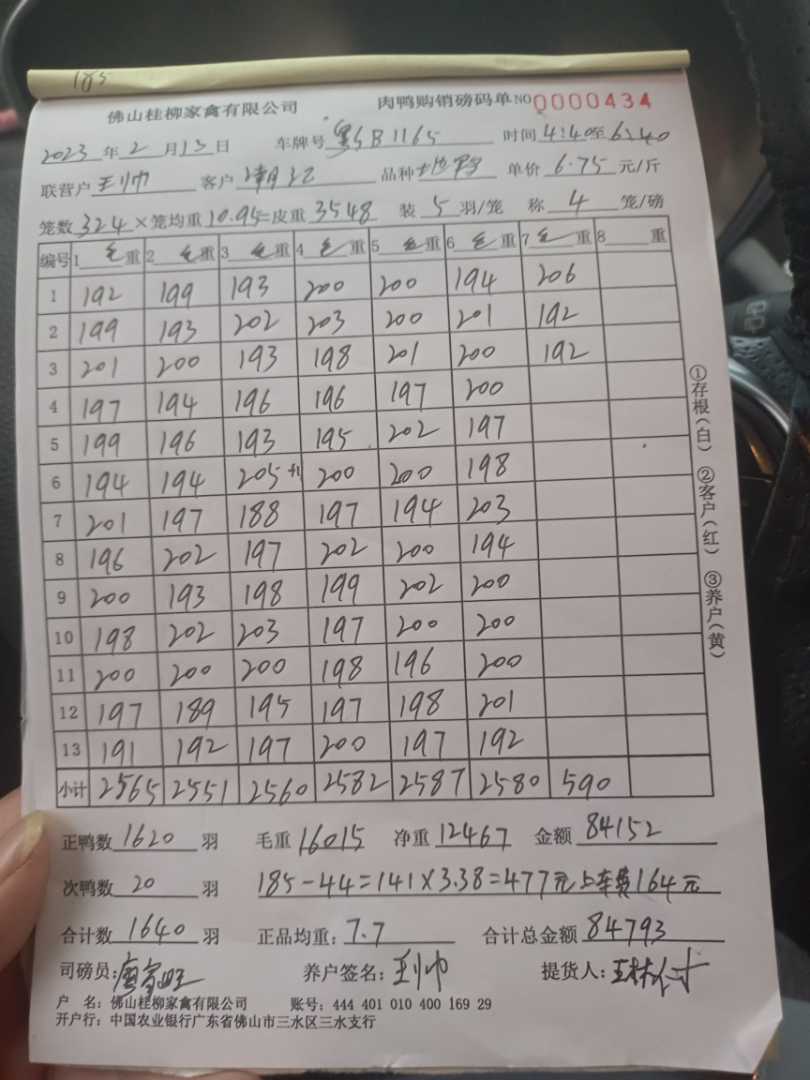 185
佛山桂柳家禽有限公司 肉鸭购销磅码单 NO 0000434
2023年2月13日 车牌号 粤SB1165 时间4:40至6:40
联营户 王小帅 客户 品种 单价 6.75 元/斤
笼数 324 × 笼均重 10.95 = 皮重 3548 装 5 羽/笼 称 4 笼/磅
编号 1 毛重 2 毛重 3 毛重 4 毛重 5 毛重 6 毛重 7 毛重 8 重
1 192 199 193 200 200 194 206
2 199 193 202 203 200 201 192
3 201 200 193 198 201 200 192
4 197 194 196 196 197 200
5 199 196 193 195 202 197
6 194 194 205+1 200 200 198
7 201 197 188 197 194 203
8 196 202 197 202 200 194
9 200 193 198 199 202 200
10 198 202 203 197 200 200
11 200 200 200 198 196 200
12 197 189 195 197 198 201
13 191 192 197 200 197 192
小计 2565 2551 2560 2582 2587 2580 590
①存根(白) ②客户(红) ③养户(黄)
正鸭数 1620 羽 毛重 16015 净重 12467 金额 84152
次鸭数 20 羽 185-44=141×3.38=477元 上车费164元
合计数 1640 羽 正品均重: 7.7 合计总金额 84793
司磅员: 养户签名: 王小帅 提货人:
户 名: 佛山桂柳家禽有限公司 账号: 444 401 010 400 169 29
开户行: 中国农业银行广东省佛山市三水区三水支行